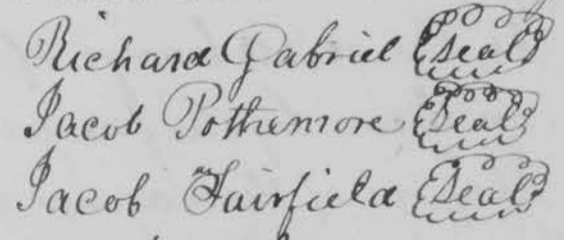 Richard Gabriel Seal
Jacob Pothemore Seal
Jacob Fairfield Seal